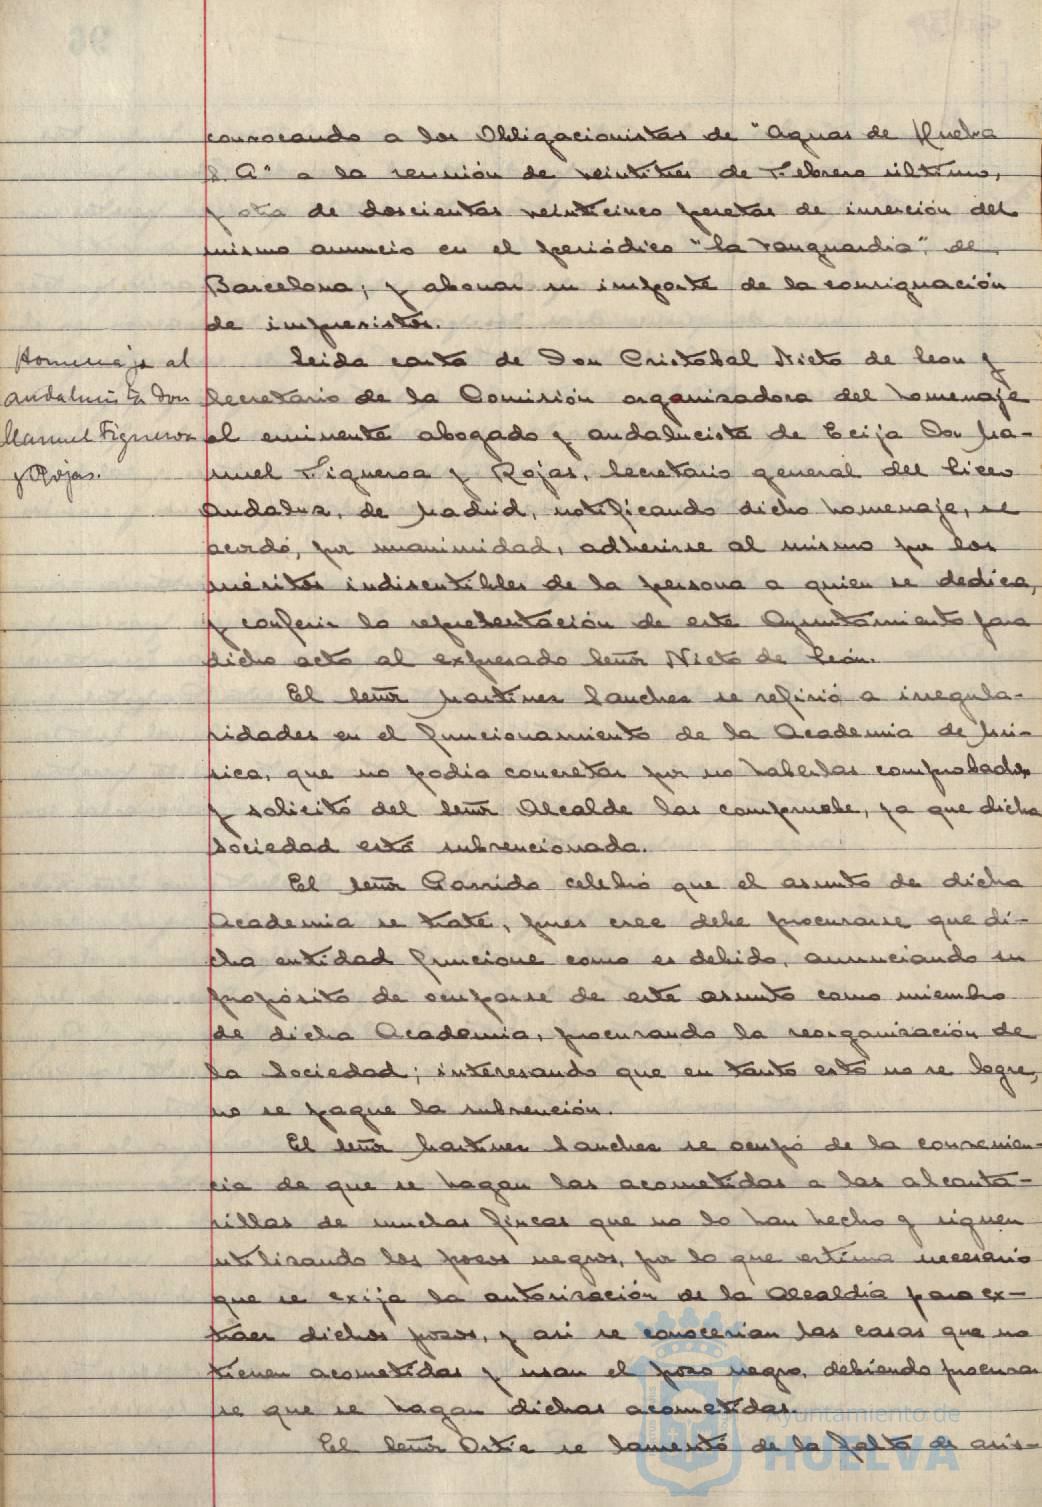 convocando a los Obligacionistas de "Aguas de Huelva
S. A" a la reunión de veintitres de Febrero último,
y otra de doscientas veinticinco pesetas de inserción del
mismo anuncio en el periódico "La Vanguardia", de
Barcelona; y abonar su importe de la consignación
de imprevistos.
Homenaje al
andalucista Don
Manuel Figueroa
y Rojas.
Leida carta de Don Cristobal Nieto de Leon y
Secretario de la Comisión organizadora del homenaje
al eminente abogado y andalucista de Ecija Don Ma-
nuel Figueroa y Rojas, Secretario general del Liceo
Andaluz, de Madrid, notificando dicho homenaje, se
acordó, por unanimidad, adherirse al mismo por los
méritos indiscutibles de la persona a quien se dedica,
y conferir la representación de este Ayuntamiento para
dicho acto al expresado Señor Nieto de León.
El Señor Martinez Sanchez se refirió a irregula-
ridades en el funcionamiento de la Academia de Mú-
sica, que no podia concretar por no haberlas comprobado,
y solicitó del Señor Alcalde las compruebe, ya que dicha
Sociedad está subvencionada.
El Señor Garrido celebró que el asunto de dicha
Academia se trate, pues cree debe procurarse que di-
cha entidad funcione como es debido, anunciando su
propósito de ocuparse de este asunto como miembro
de dicha Academia, procurando la reorganización de
la Sociedad; interesando que en tanto esto no se logre,
no se pague la subvención.
El Señor Martinez Sanchez se ocupó de la convenien-
cia de que se hagan las acometidas a las alcanta-
rillas de muchas fincas que no lo han hecho y siguen
utilizando los pozos negros, por lo que estima necesario
que se exija la autorización de la Alcaldía para ex-
traer dichos pozos, y asi se conocerian las casas que no
tienen acometidas y usan el pozo negro, debiendo procurar
se que se hagan dichas acometidas.
El Señor Ortiz se lamentó de la falta de asis-
Ayuntamiento de
HUELVA